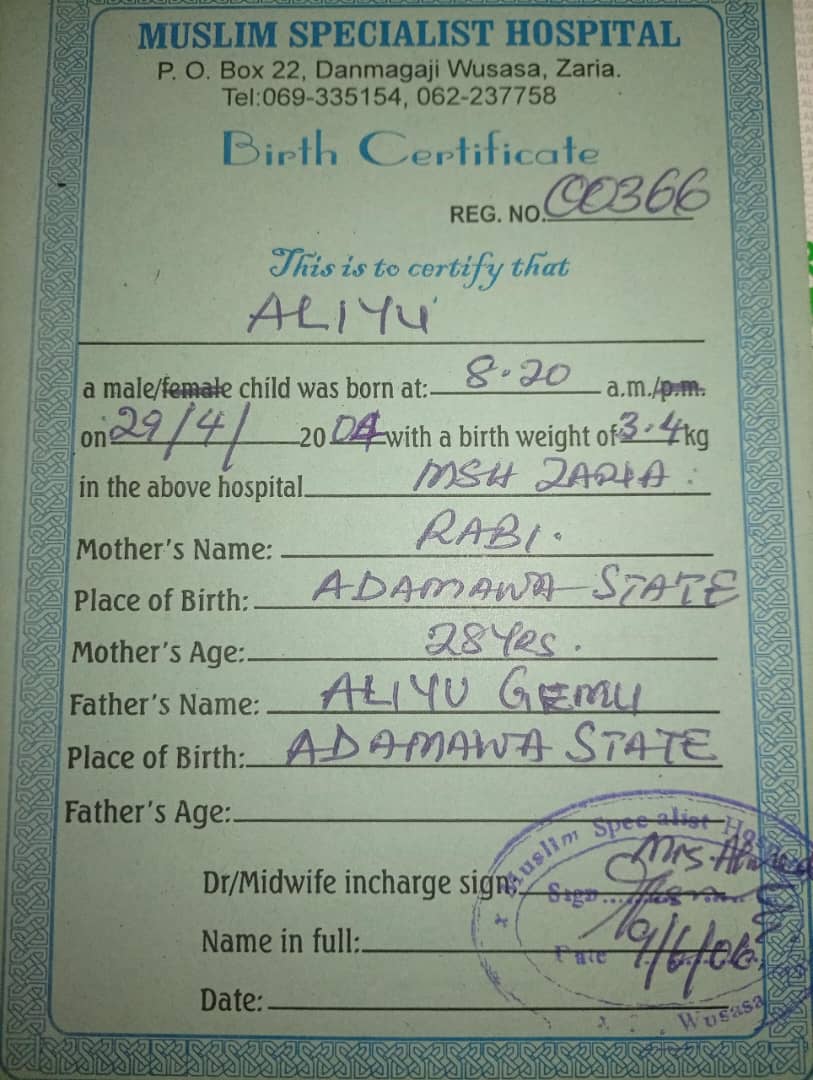 MUSLIM SPECIALIST HOSPITAL
P. O. Box 22, Danmagaji Wusasa, Zaria.
Tel:069-335154, 062-237758
Birth Certificate
REG. NO. 00366
This is to certify that
ALIYU
a male/female child was born at: 8.20 a.m./p.m.
on 29/4/ 20 04 with a birth weight of 3.4 kg
in the above hospital MSH ZARIA.
Mother's Name: RABI.
Place of Birth: ADAMAWA STATE
Mother's Age: 28 Yrs.
Father's Name: ALIYU GEMU
Place of Birth: ADAMAWA STATE
Father's Age:
Muslim Specialist Hospital
Mrs.
Dr/Midwife incharge sign:
Sign
Name in full:
Date 19/6/06
Date:
Wusasa